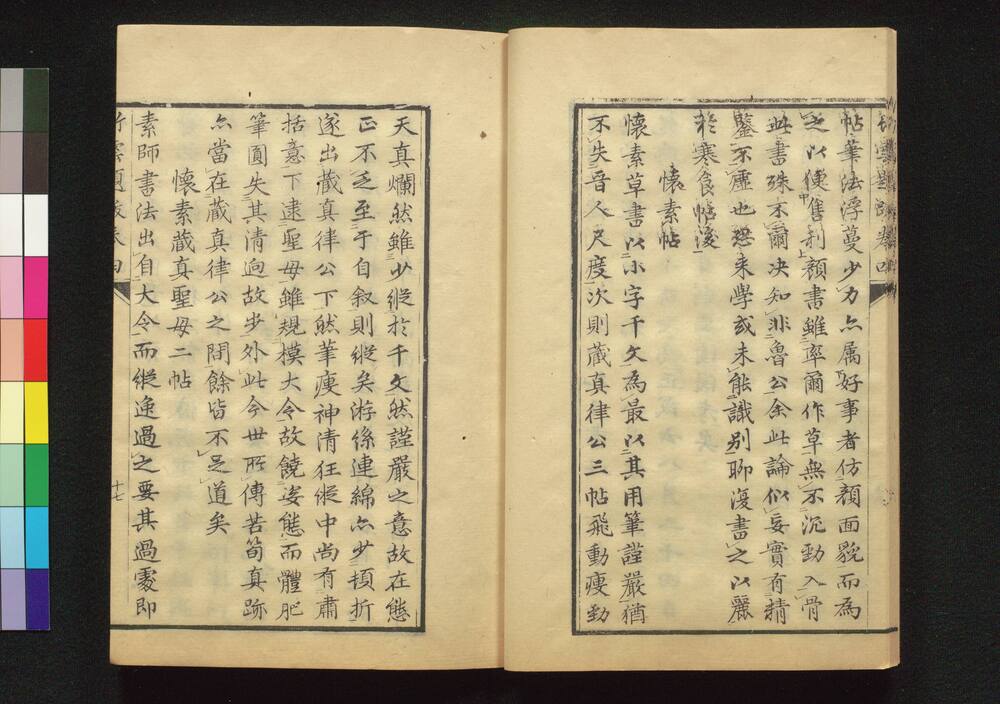 竹雲題跋卷四
帖筆法浮蔓少力亦属好事者仿顏面貌而為
之以便售利顏書雖率爾作草無不沉勁入骨
此書殊不爾决知非魯公余此論似妄實有精
鑒不虛也恐来學或未能識别聊復書之以麗
於寒食帖後
懷素帖
懷素草書以小字千文為最以其用筆謹嚴猶
不失晋人尺度次則藏真律公三帖飛動瘦勁
天真爛然雖少縱於千文然謹嚴之意故在態
正不乏至于自叙則縱矣游絲連綿亦少頓折
遂出藏真律公下然筆瘦神清狂縱中尚有肅
括意下逮聖母雖規模大令故饒姿態而體肥
筆圓失其清迥故步外此今世所傳苦筍真跡
亦當在藏真律公之間餘皆不足道矣
懷素藏真聖母二帖
素師書法出自大令而縱逸過之要其過處即
竹雲題跋卷四
十七